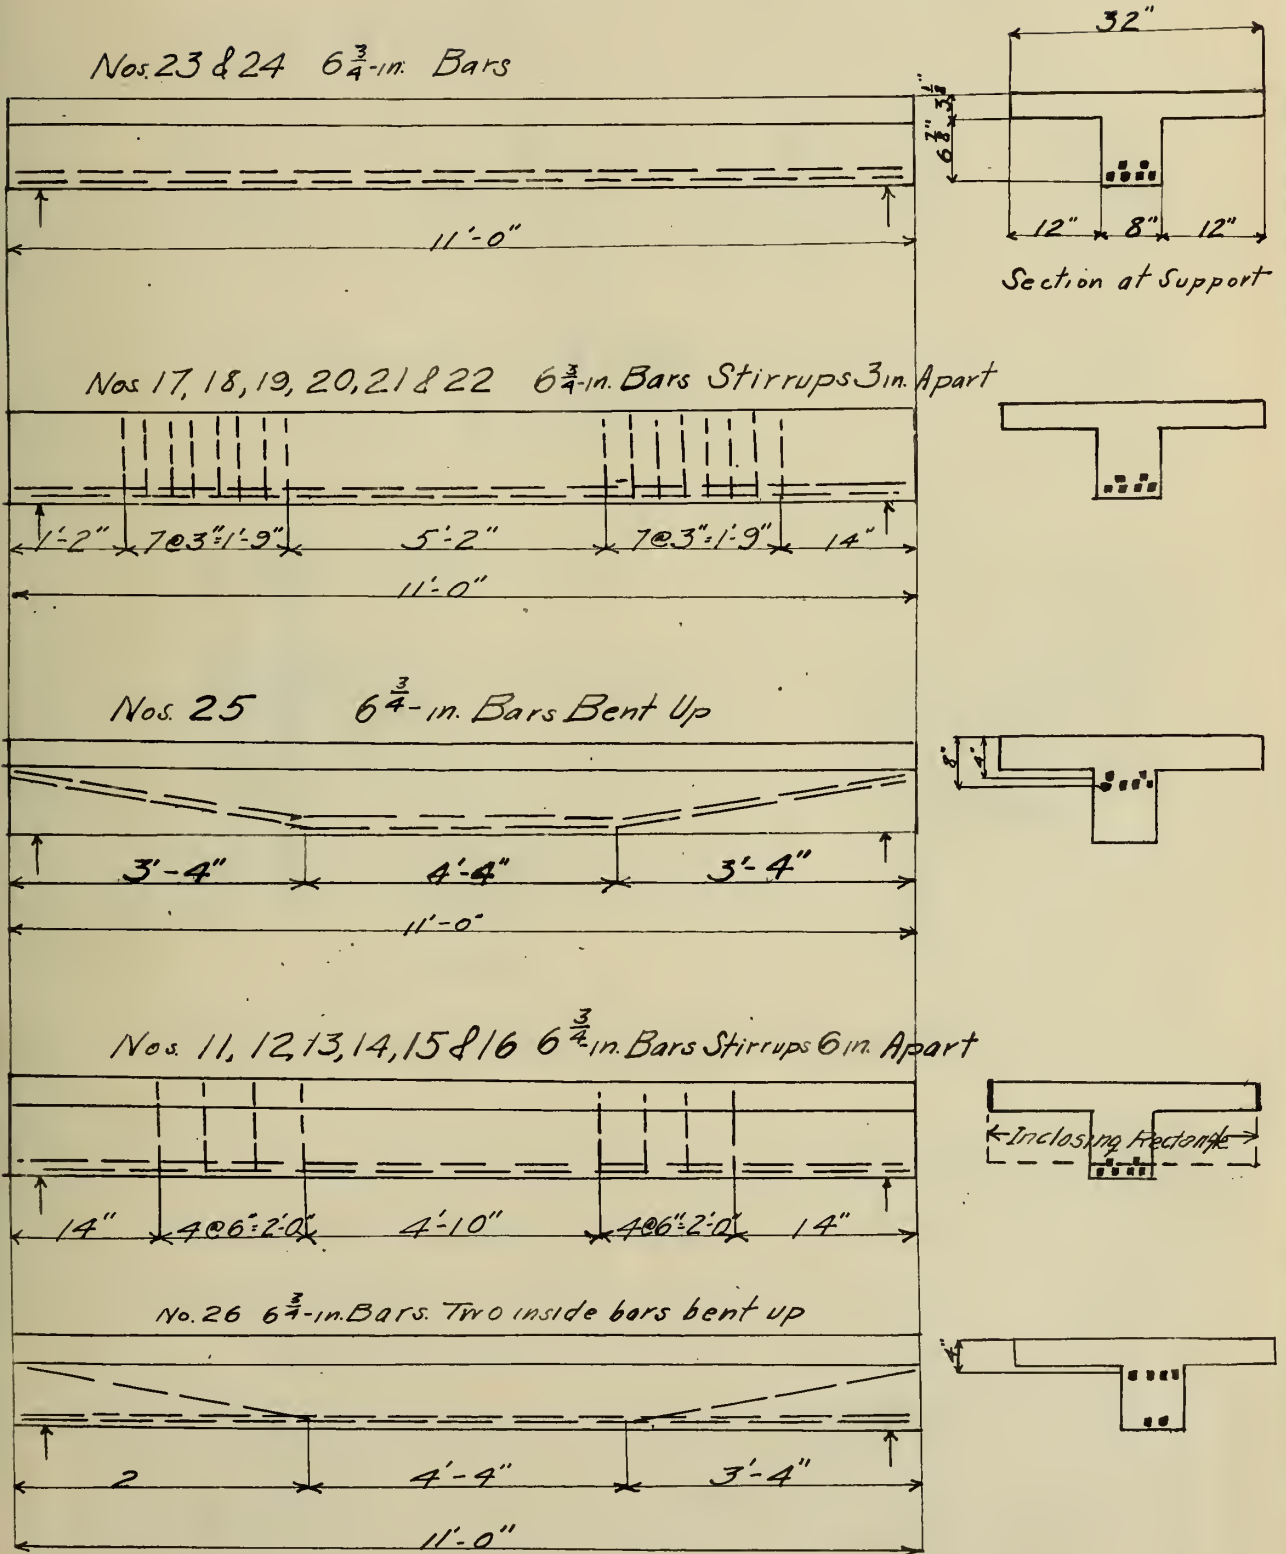 32"
Nos. 23 & 24 6 3/4-in. Bars
3 1/8"
6 7/8"
11'-0"
12" 8" 12"
Section at Support
Nos 17, 18, 19, 20, 21 & 22 6 3/4-in. Bars Stirrups 3 in. Apart
1'-2" 7@3"=1'-9" 5'-2" 7@3"=1'-9" 14"
11'-0"
Nos. 25 6 3/4-in. Bars Bent Up
8" 4"
3'-4" 4'-4" 3'-4"
11'-0"
Nos. 11, 12, 13, 14, 15 & 16 6 3/4-in. Bars Stirrups 6 in. Apart
Inclosing Rectangle
14" 4@6"=2'-0" 4'-10" 4@6"=2'-0" 14"
No. 26 6 3/4-in. Bars. Two inside bars bent up
4"
2 4'-4" 3'-4"
11'-0"